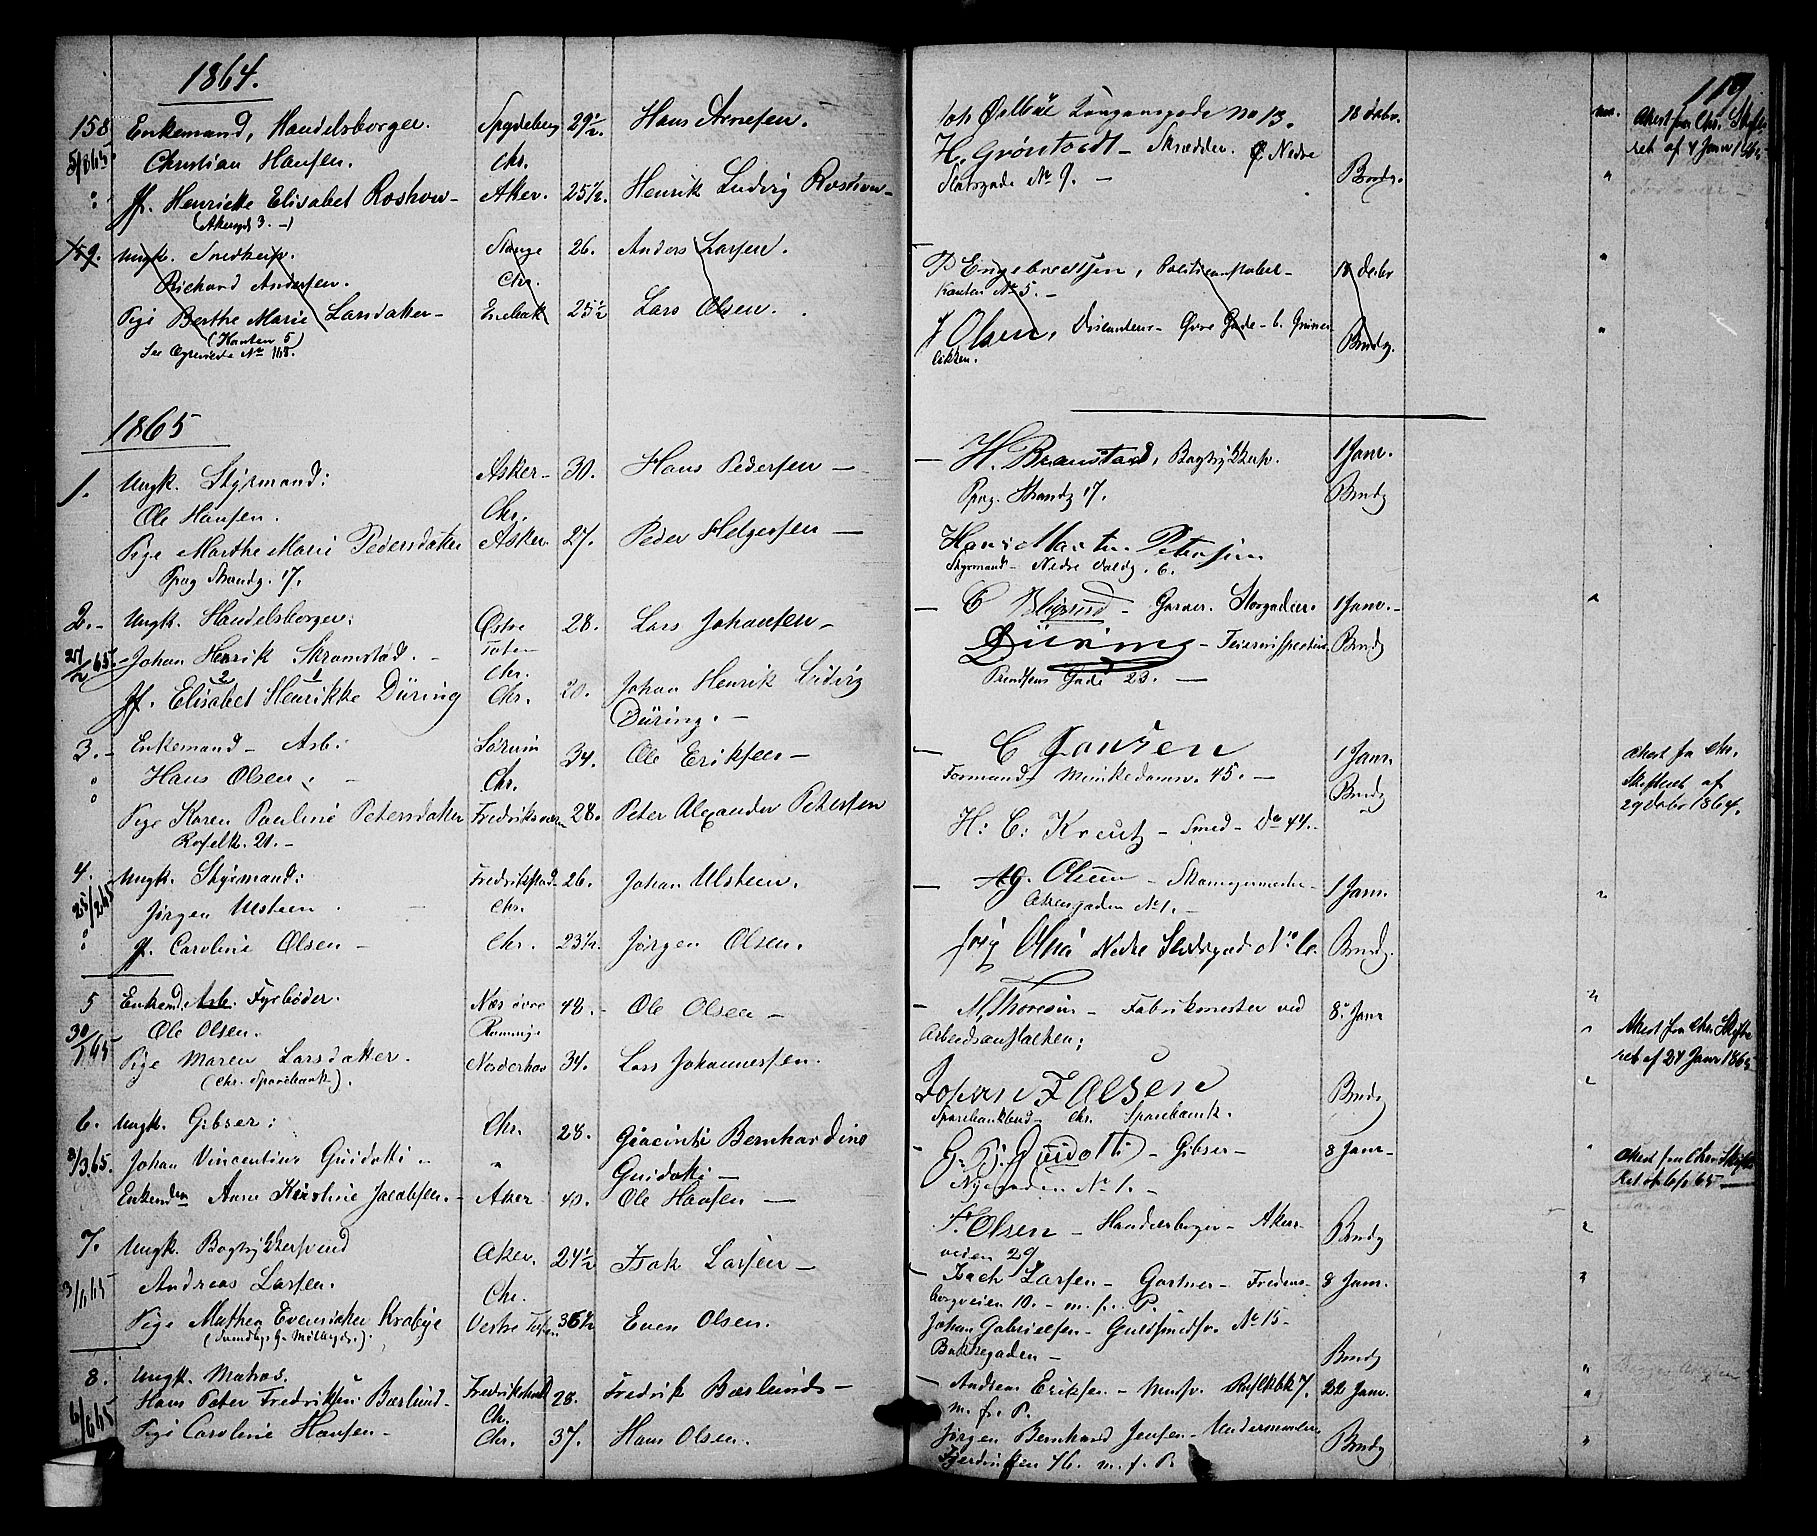 1864.
158 Enkemand, Handelsborger. Spydeberg 29 1/2. Hans Arnesen.
5/1 865. Christian Hansen. Chr.
Jf. Henriette Elisabet Roshow - Aker. 25 1/2. Henrik Ludvig Roshow -
(Akersgd 3. -)
159. Ungk. Snedkersv. Stange 26. Anders Larsen.
Richard Andersen. Chr.
Pige Berthe Marie Larsdatter - Enebak 25 1/2 Lars Olsen.
(Kanten 5)
See No 168.
1865
1. Ungk. Styrmand: Asker - 30. Hans Pedersen -
Ole Hansen. Chr.
Pige Marthe Marie Pedersdatter Asker 27. Peder Helgersen -
Pipg Strandg. 17.
2. - Ungk. Handelsborger: Østre 28. Lars Johansen -
27/2 65. Johan Henrik Skramstad. - Toten
Chr.
Jf. Elisabet Henrikke Düring Chr. 20. Johan Henrik Ludvig
Düring. -
3. - Enkemand - Arb: Sørum 34. Ole Eriksen -
Hans Olsen. - Chr.
Pige Karen Pauline Petersdatter Fredriksværn 28. Peter Alexander Petersen
Rosenk. 21. -
4. Ungk. Styrmand: Fredrikstad 26. Johan Ulsteen.
25/2 65 Jørgen Ulsteen. - Chr.
Jf. Caroline Olsen - Chr. 23 1/2. Jørgen Olsen.
5 Enkemd. Arb. Fyrbøder. Næs øvre 48. - Ole Olsen -
30/1 65 Ole Olsen. Romerige
Pige Maren Larsdatter. Norderhov 34. Lars Johannessen.
(Chr. Sparebank).
6. Ungk. Gibser: Chr. 28. Giacinti Bernhardino
3/3 65. Johan Vincentius Guidotti " Guidotti -
Enkemden Anne Kirstine Jacobsen. - Aker 40. Ole Hansen -
7. Ungk. Bogtrykkersvend Aker. 24 1/2 Isak Larsen -
3/1 65 Andreas Larsen. Chr.
Pige Mathea Evensdatter Krabye Vestre Toten 36 1/2 Even Olsen.
8. Ungk. Matros. Fredrikshald 28. Fredrik Bærlund -
6/6 65 Hans Peter Fredriksen Bærlund - Ch.
Pige Caroline Hansen - Chr. 37. Hans Olsen.
119
No 13. 18 Decbr. Attest fra Chr. Skifte-
H. Grøntoedt - Skrædder. Nedre ret af 4 Janr 1865
Slotsgade No 9. - Brudg.
P Engebretsen, Politiconstabel - 18 Decbr
Kanten No 5. -
J Olsen, Øvre Gade - b. Grüner
løkken. Brudg.
- H. Branstad, Bogtrykkersv. 1 Janr.
Pipg. Strandg 17. Brudg
Hans Martin Petersen
Styrmand - Nedre Voldg. 6.
- C Blixrud - Garver. Storgaden. 1 Janr. -
Düring - Feierinspecteur Brudg
Prindsens Gade 23. -
- C Jansen 1 Janr. Attest fra Chr.
Formand Munkedamsv. 45. - Brudg Skifteret af
29 Decbr 1864.
H: C: Kreutz - Smed - Do 44. -
- Ag. Olsen - Skomagermester - 1 Janr.
Akersgaden No 1. -
Jørg Olsen Nedre Slotsgad No 10. Brudg.
- M. Thoresen - Fabrikmester ved 8. Janr
Arbeidsanstalten; Attest fra Chr Skifte
ret af 27 Janr 1865
Johan Falsen Brudg
Sparebankbud - Chr. Sparebank.
- G. B. Guidotti - Gibser - 8 Janr - Attest fra Chr Skifte
Nygaden No 1. - Ret af 6/2 65 -
F. Olsen - Handelsborger - Akers- Brudg
veien 29
- Isach Larsen - Gartner - Fredens- 8 Janr.
borgveien 10. - m. f. P.
Johan Gabrielsen - Guldsmedsv. No 15 -
Bakkegaden - Brudg
- Andreas Eriksen - Mursv. 22 Janr.
m. f. P.
Jørgen Bernhard Jensen - Brudg
Fjerdingen 46. m. f. P.